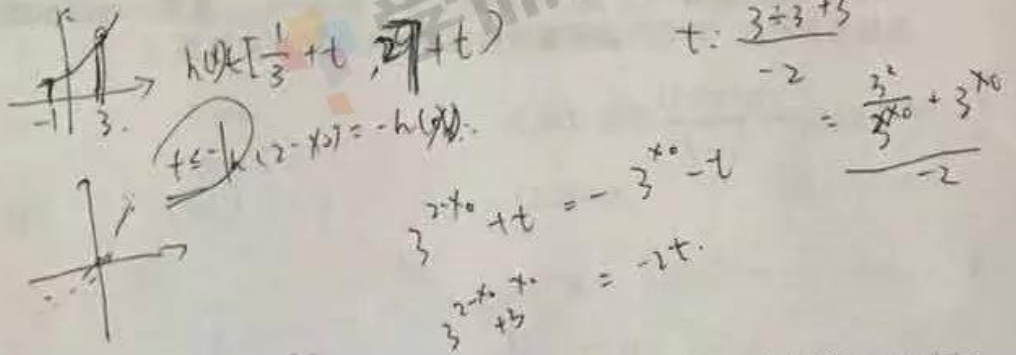 h(x)∈[1/3+t, 27+t)
-1 3.
t≤-1
h(2-x₀)=-h(x₀).
3^(2-x₀)+t=-3^(x₀)-t
3^(2-x₀)+3^(x₀)=-2t.
t:
-2
=(3²/3^(x₀)+3^(x₀))/-2